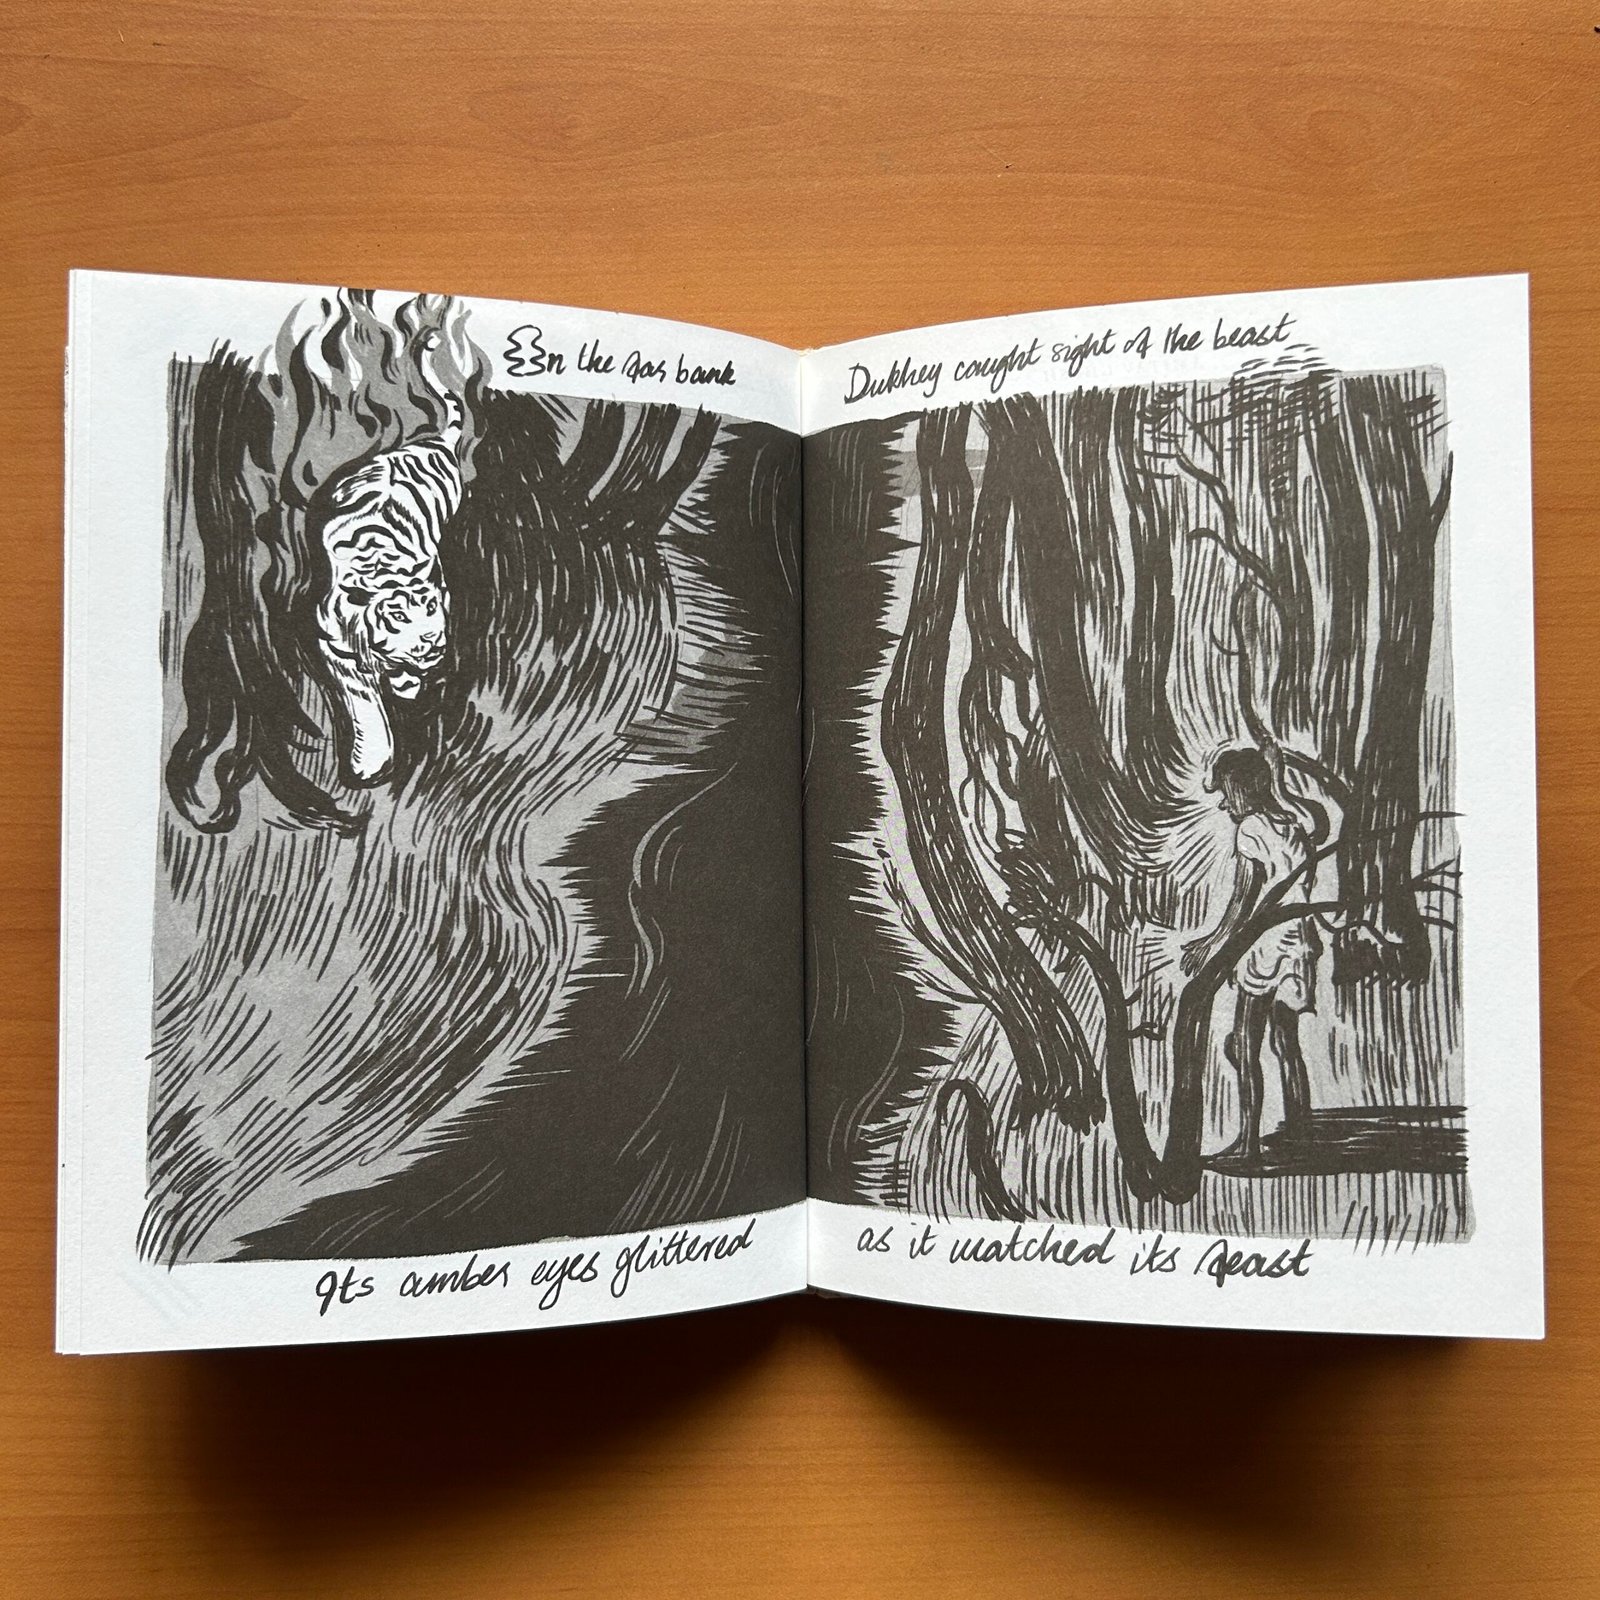 On the far bank
Dukhey caught sight of the beast
Its amber eyes glittered
as it watched its feast